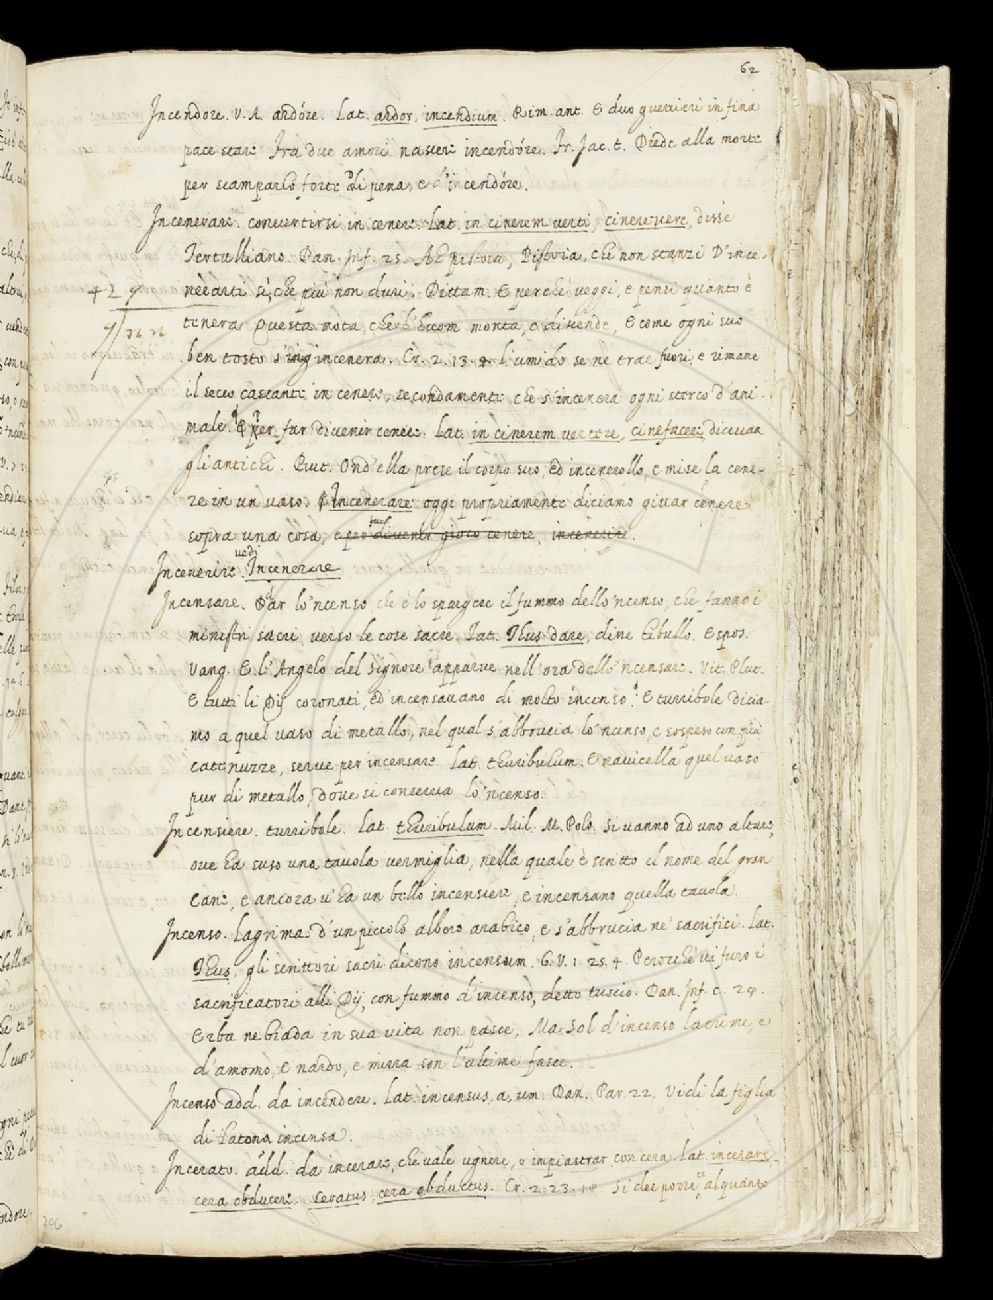 62
Incendore. V. A. ardóre. Lat. ardor, incendium. Rim. ant. E duo guerrieri in fina
pace stare Fra due amori nascere incendóre. Fr. Jac. t. Diede alla morte
per scamparlo forte di pena, e d'incendóre.
Incenerare. convertirsi in cenere. Lat. in cinerem verti, cinerescere, disse
Tertulliano. Dan. Inf. 25. Ahi pistoia, Pistoia, chè non stanzi D'ince-
nerarti sì, che più non duri. Dittam. E perchè veggi, e pensi quanto è
tenera Questa rota, che l'huom monta, e discende, E come ogni suo
ben tosto s'incenera. Cr. 2. 13. 4. l'umido se ne trae fuori, e rimane
il secco cascante in cenere, secondamente che s'incenera ogni sterco d'ani-
male. Per far divenir cenere. Lat. in cinerem vertere, cinefacere, dicevan
gli antichi. Plut. Ond'ella prese il corpo suo, ed incenerollo, e mise la cene-
re in un vaso. Incenerare oggi propriamente diciamo gittar cenere
sopra una cosa, e per divenir cenere, incenerire.
Incenerire. vedi Incenerare
Incensare. Dar lo'ncenso, che è lo spargere il fummo dello'ncenso, che fanno i
ministri sacri, verso le cose sacre. Lat. Thus dare, disse Tibullo. Espos.
Vang. E l'Angelo del Signore apparve nell'ora dello'ncensare. Vit. Plut.
E tutti li Dij coronati, ed incensavano di molto incenso. E turribole dicia-
mo a quel vaso di metallo, nel qual s'abbrucia lo'ncenso, e sospeso con più
catenuzze, serve per incensare. Lat. thuribulum. E navicella quel vaso
pur di metallo, dove si conserva lo'ncenso.
Incensiere. turribole. Lat. thuribulum. Mil. M. Polo. Si vanno ad uno altare,
ove ha suso una tavola vermiglia, nella quale è scritto il nome del gran
Cane, e ancora v'ha un bello incensiere, e incensano quella tavola.
Incenso. Lagrima d'un piccolo albero arabico, e s'abbrucia ne' sacrifici. Lat.
Thus, gli scrittori sacri dicono incensum. G. V. 1. 25. 4. Perocchè vi furo i
sacrificatori alli Dij, con fummo d'incenso, detto tuscio. Dan. Inf. c. 24.
Erba ne biada in sua vita non pasce, Ma sol d'incenso lacrime, e
d'amomo, e nardo, e mirra son l'ultime fasce.
Incenso add. da incendere. Lat. incensus, a, um. Dan. Par. 22. Vidi la figlia
di Latona incensa.
Incerato. add. da incerare, che vale ugnere, o impiastrar con cera. Lat. incerare,
cera obducere. Ceratus, cera obductus. Cr. 2. 23. 18. Si dee porre alquanto